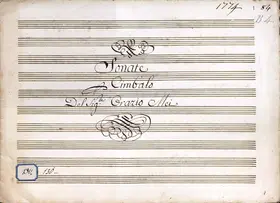 1774
84
Sonate
Cimbalo
Del Sigr. Orazio Mei
130.